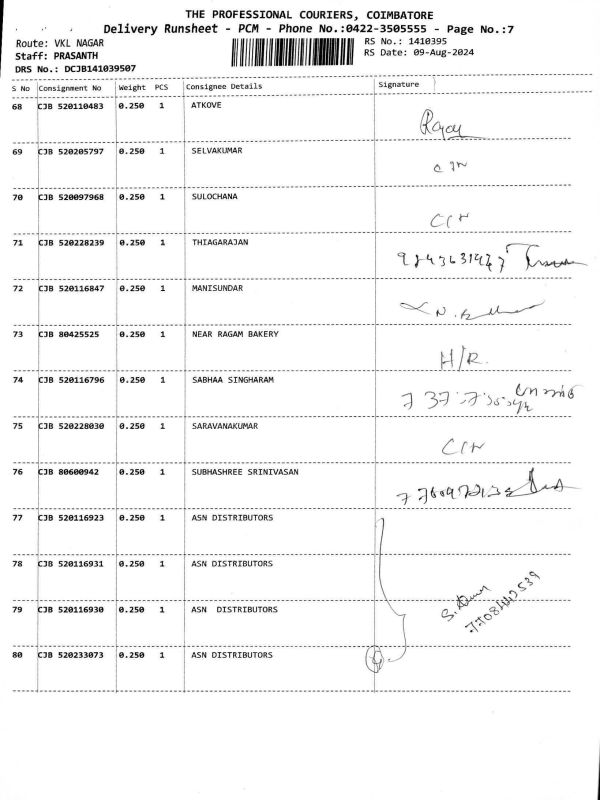 THE PROFESSIONAL COURIERS, COIMBATORE
Delivery Runsheet - PCM - Phone No.:0422-3505555 - Page No.:7
Route: VKL NAGAR
RS No.: 1410395
Staff: PRASANTH
RS Date: 09-Aug-2024
DRS No.: DCJB141039507
S No Consignment No Weight PCS Consignee Details Signature
68 CJB 520110483 0.250 1 ATKOVE
69 CJB 520205797 0.250 1 SELVAKUMAR
70 CJB 520097968 0.250 1 SULOCHANA
71 CJB 520228239 0.250 1 THIAGARAJAN
72 CJB 520116847 0.250 1 MANISUNDAR
73 CJB 80425525 0.250 1 NEAR RAGAM BAKERY H/R.
74 CJB 520116796 0.250 1 SABHAA SINGHARAM
75 CJB 520228030 0.250 1 SARAVANAKUMAR
76 CJB 80600942 0.250 1 SUBHASHREE SRINIVASAN
77 CJB 520116923 0.250 1 ASN DISTRIBUTORS
78 CJB 520116931 0.250 1 ASN DISTRIBUTORS
79 CJB 520116930 0.250 1 ASN DISTRIBUTORS
80 CJB 520233073 0.250 1 ASN DISTRIBUTORS
4